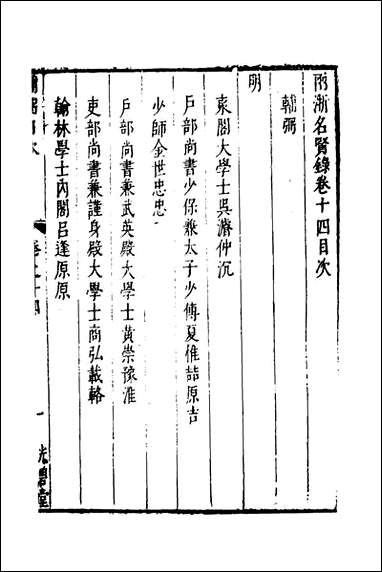 兩浙名賢錄卷十四目次
輔弼
明
東閣大學士吳濬仲沉
戶部尚書少保兼太子少傅夏維喆原吉
少師金世忠忠
戶部尚書兼武英殿大學士黃崇豫淮
吏部尚書兼謹身殿大學士商弘載輅
翰林學士內閣呂逢原原
卷之十四
一
光碧堂